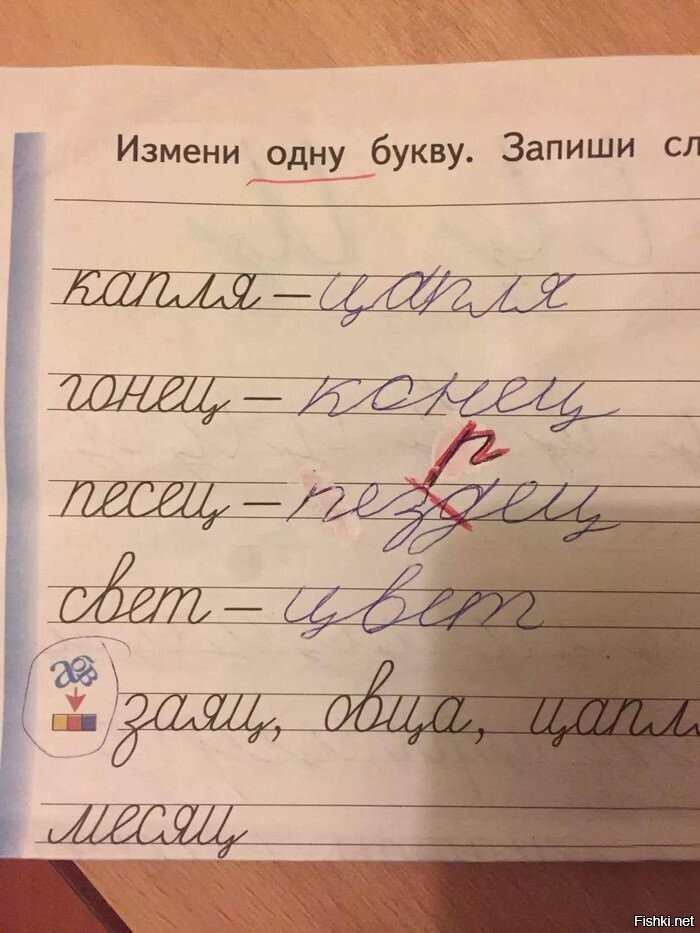 Измени одну букву. Запиши сл
капля – цапля
гонец – конец
р
песец – пездец
свет – цвет
абв
заяц, овца, цапл
месяц
Fishki.net